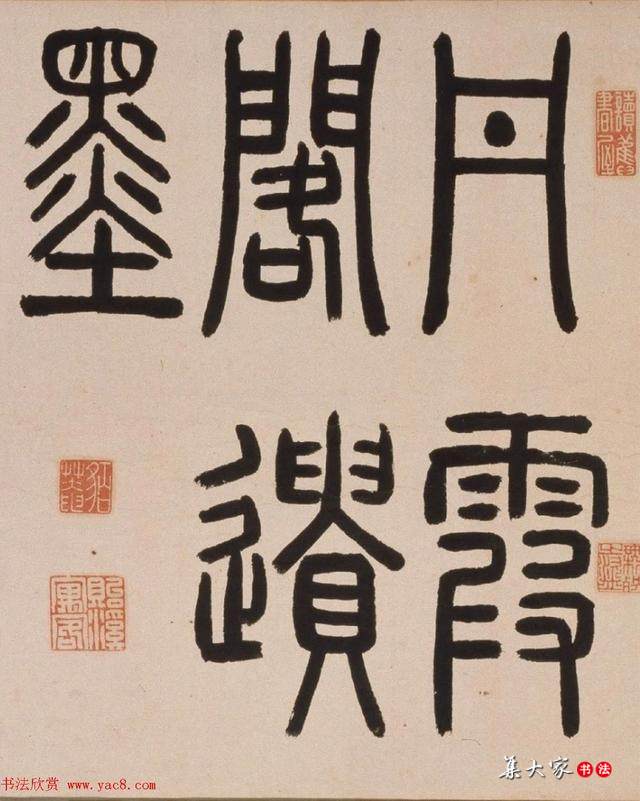 丹霞
閣遺
墨
书法欣赏 www.yac8.com
集大家 书法